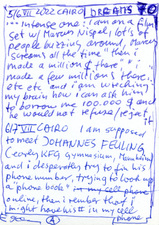 5/6 VII 2022 CAIRO DREAMS
...intense one: I am on a film
set w/ Marcus Nispel, lots of
people buzzing around, Marcus
screams all the time. Then i
made a million $ there,
made a few million $ there,
etc etc and i am wrecking
my brain how can i ask him
to borrow me 100.000 $ and
he would not refuse/reject it
6/7 VII CAIRO I am supposed
to meet JOHANNES FEULING
(early KFG gymnasium, Mannheim)
and i desperately try to find his
phone number, trying to look in
a phone book in my cell phone
online, then i remember that i
might have his # in my cell
phone